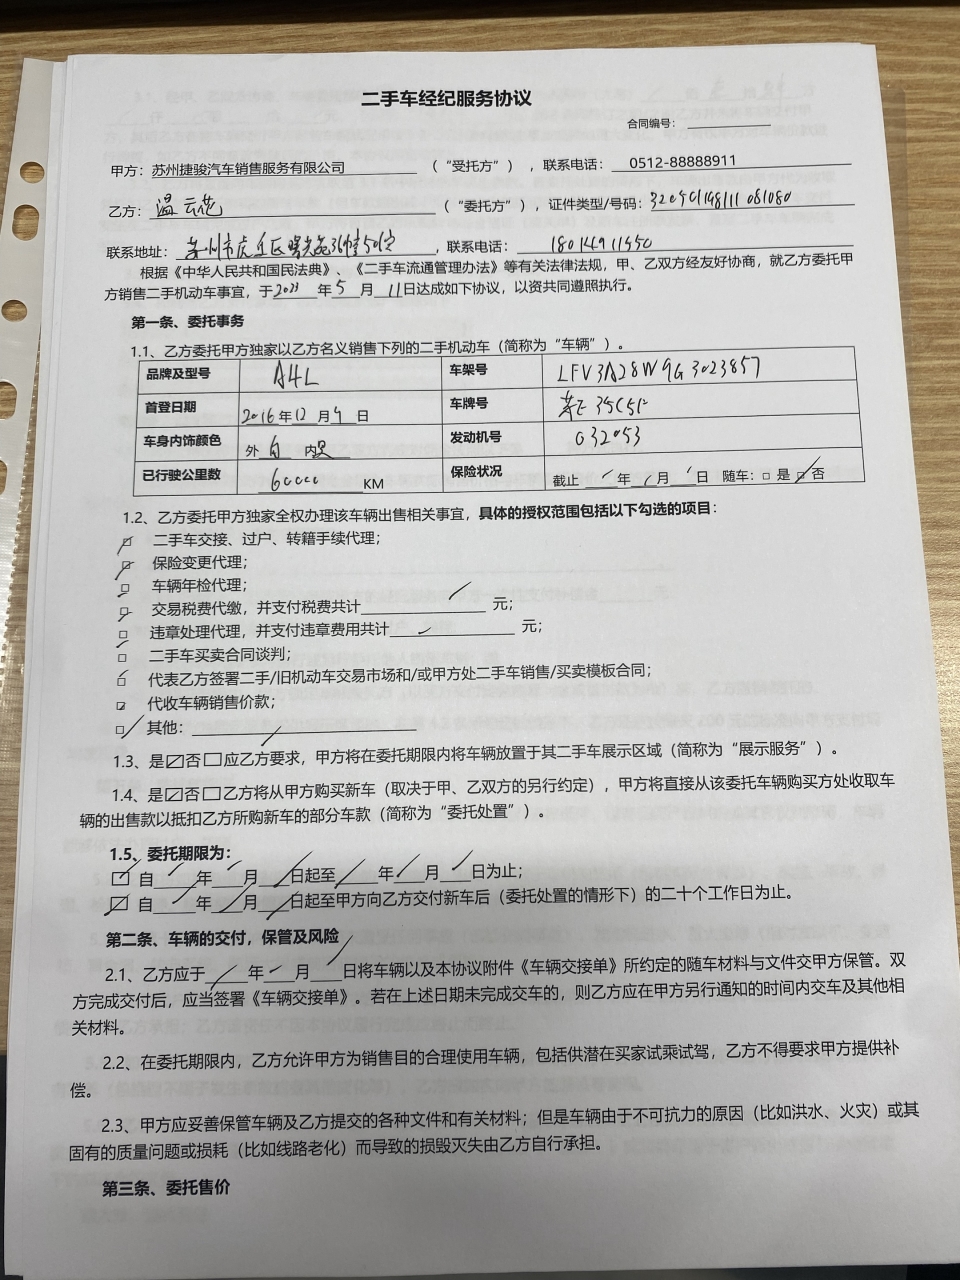 二手车经纪服务协议
合同编号：
甲方：苏州捷骏汽车销售服务有限公司 （“受托方”），联系电话： 0512-88888911
乙方：温云花 （“委托方”），证件类型/号码：
联系地址：苏州市虎丘区 ，联系电话：18014911550
根据《中华人民共和国民法典》、《二手车流通管理办法》等有关法律法规，甲、乙双方经友好协商，就乙方委托甲
方销售二手机动车事宜，于2023年5月11日达成如下协议，以资共同遵照执行。
第一条、委托事务
1.1、乙方委托甲方独家以乙方名义销售下列的二手机动车（简称为“车辆”）。
品牌及型号 A4L 车架号 LFV3A28W9G3023857
首登日期 2016年12月9日 车牌号
车身内饰颜色 外 白 内 黑 发动机号 032053
已行驶公里数 60000 KM 保险状况 截止 年 月 日 随车：□ 是 ☑ 否
1.2、乙方委托甲方独家全权办理该车辆出售相关事宜，具体的授权范围包括以下勾选的项目：
☑ 二手车交接、过户、转籍手续代理；
☑ 保险变更代理；
☑ 车辆年检代理；
☑ 交易税费代缴，并支付税费共计 / 元；
☑ 违章处理代理，并支付违章费用共计 / 元；
☑ 二手车买卖合同谈判；
☑ 代表乙方签署二手/旧机动车交易市场和/或甲方处二手车销售/买卖模板合同；
☑ 代收车辆销售价款；
□ 其他：
1.3、是☑否□应乙方要求，甲方将在委托期限内将车辆放置于其二手车展示区域（简称为“展示服务”）。
1.4、是☑否□乙方将从甲方购买新车（取决于甲、乙双方的另行约定），甲方将直接从该委托车辆购买方处收取车
辆的出售款以抵扣乙方所购新车的部分车款（简称为“委托处置”）。
1.5、委托期限为：
□ 自 / 年 / 月 / 日起至 / 年 / 月 / 日为止；
☑ 自 / 年 / 月 / 日起至甲方向乙方交付新车后（委托处置的情形下）的二十个工作日为止。
第二条、车辆的交付，保管及风险
2.1、乙方应于 / 年 / 月 / 日将车辆以及本协议附件《车辆交接单》所约定的随车材料与文件交甲方保管。双
方完成交付后，应当签署《车辆交接单》。若在上述日期未完成交车的，则乙方应在甲方另行通知的时间内交车及其他相
关材料。
2.2、在委托期限内，乙方允许甲方为销售目的合理使用车辆，包括供潜在买家试乘试驾，乙方不得要求甲方提供补
偿。
2.3、甲方应妥善保管车辆及乙方提交的各种文件和有关材料；但是车辆由于不可抗力的原因（比如洪水、火灾）或其
固有的质量问题或损耗（比如线路老化）而导致的损毁灭失由乙方自行承担。
第三条、委托售价